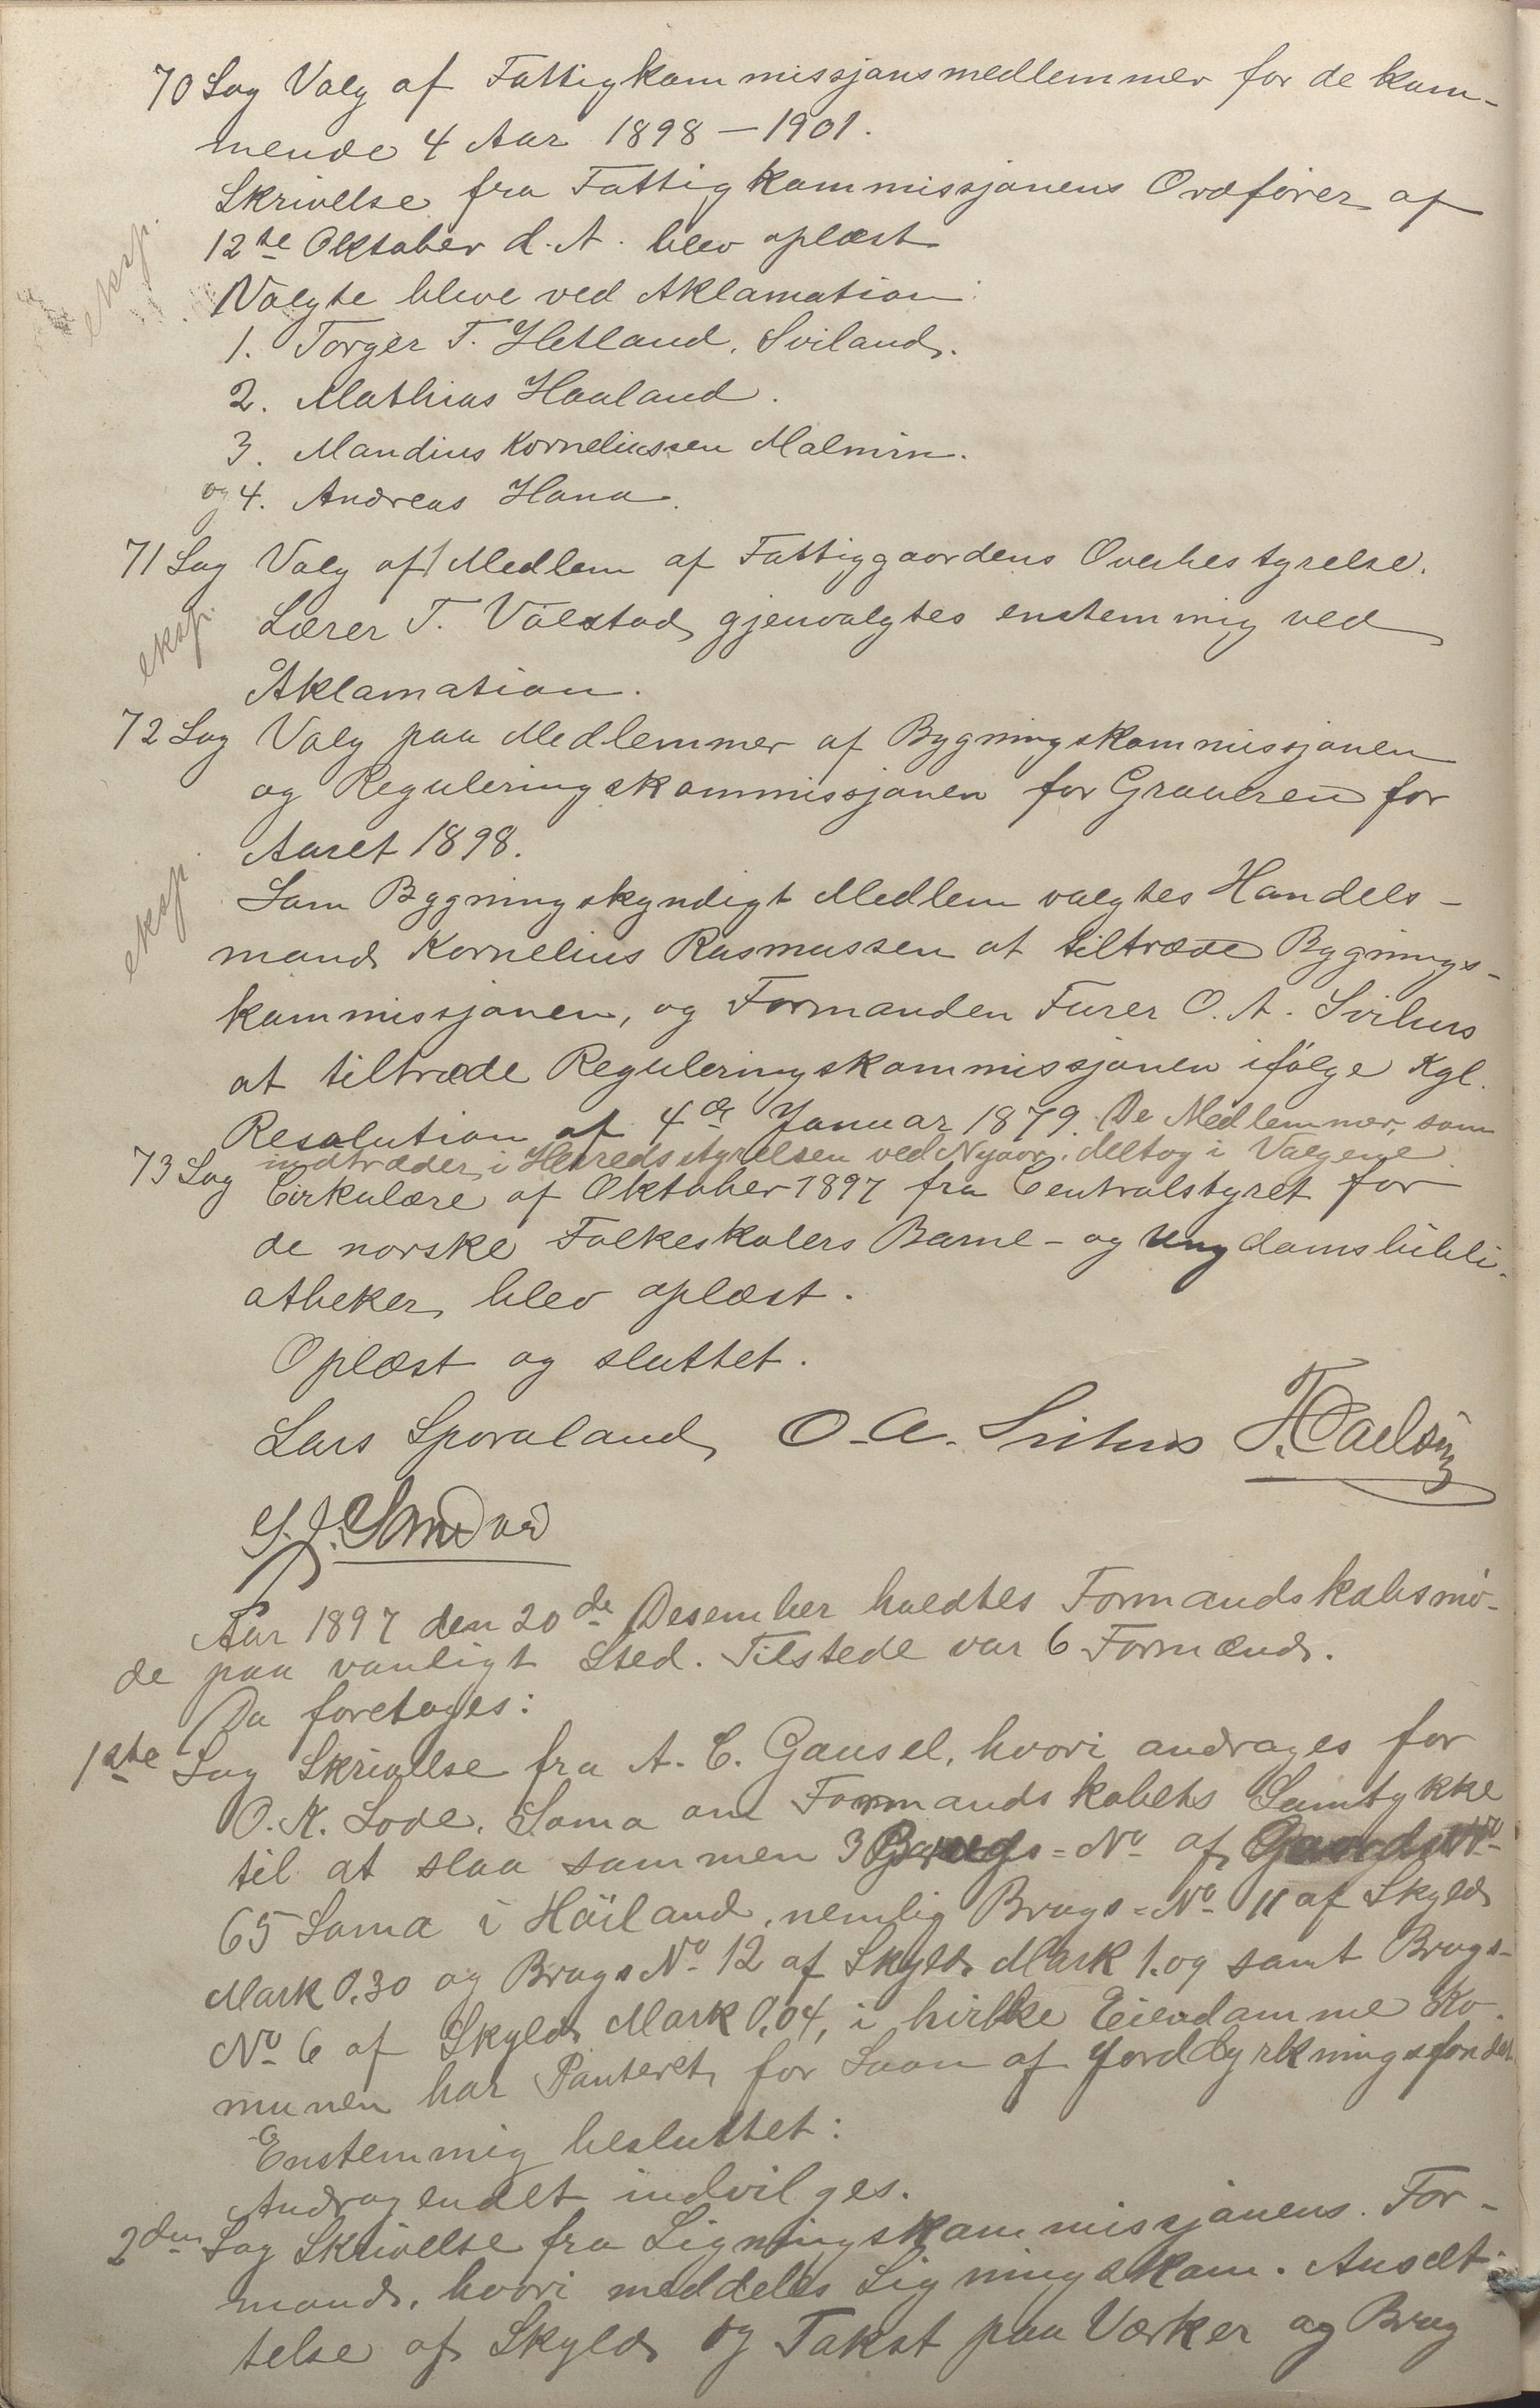 70 Sag Valg af Fattigkommissjonsmedlemmer for de kom-
mende 4 Aar 1898 – 1901.
Skrivelse fra Fattigkommissjonens Ordfører af
12te Oktober d. A. blev oplæst
eksp.
Valgte bleve ved Aklamation:
1. Torger T. Hetland, Sviland.
2. Mathias Haaland.
3. Mandius Korneliussen Malmin.
og 4. Andreas Hana.
71 Sag Valg af 1 Medlem af Fattiggaardens Overbestyrelse.
Lærer T. Vølstad gjenvalgtes enstemmig ved
eksp.
Aklamation.
72 Sag Valg paa Medlemmer af Bygningskommissjonen
og Reguleringskommissjonen for Graveren for
Aaret 1898.
Som Bygningskyndigt Medlem valgtes Handels-
eksp.
mand Kornelius Rasmussen at tiltræde Bygnings-
kommissjonen, og Formanden Furer O. A. Svihus
at tiltræde Reguleringskommissjonen ifølge Kgl.
Resolution af 4de Januar 1879. De Medlemmer, som
indtræder i Herredsstyrelsen ved Nyaar, deltog i Valgene.
73 Sag Cirkulære af Oktober 1897 fra Centralstyret for
de norske Folkeskolers Barne- og Ungdomsbibli-
otheker blev oplæst.
Oplæst og sluttet.
Lars Sporaland O. A. Svihus
Aar 1897 den 20de Desember holdtes Formandskabsmø-
de paa vanligt Sted. Tilstede var 6 Formænd.
Da foretoges:
1ste Sag Skrivelse fra A. C. Gausel, hvori andrages for
O. K. Lode, Soma om Formandskabets Samtykke
til at slaa sammen 3 Brugs-No af Gaards No
65 Soma i Høiland, nemlig Brugs-No 11 af Skyld
Mark 0,30 og Brugs No 12 af Skyld Mark 1.09 samt Brugs-
No 6 af Skyld Mark 0,04, i hvilke Eiendomme Ko-
munen har Panteret for Laan af Jorddyrkningsfondet.
Enstemmig besluttet:
Andragendet indvilges.
2den Sag Skrivelse fra Ligningskommissjonens For-
mand, hvori meddeles Ligningskom. Ansæt-
telse af Skyld og Takst paa Værker og Brug